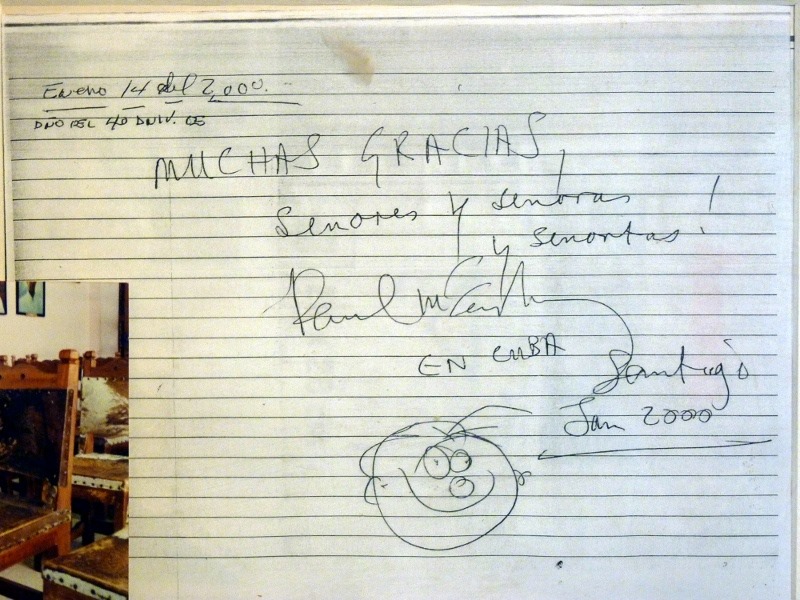 Enero 14 del 2,000.
MUCHAS GRACIAS,
Senores y senoras
y senoritas!
Paul McCartney
EN CUBA
Santiago
Jan 2000